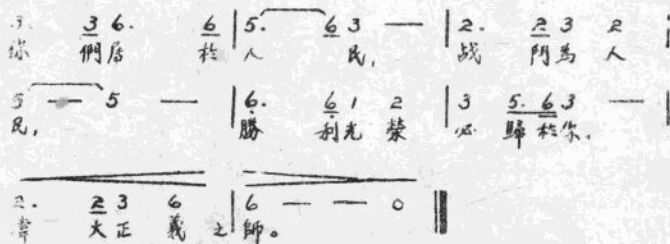 3. 3 6. 6 | 5. 6 3 — | 2. 2 3 2
你 們居 於 人 民, 战 鬥為 人
5 — 5 — | 6. 6 1 2 | 3 5. 6 3 — |
民, 勝 利光 榮 必 歸 於你。
2. 2 3 6 | 6 — — 0 ‖
偉 大正 義 之 師。